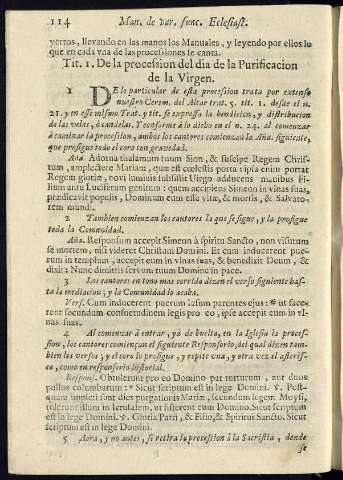 114 Man. de var. func. Eclesiast.
yertos, llevando en las manos los Manuales, y leyendo por ellos lo
que en cada vna de las processiones se canta.
TIT. I. De la procession del dia de la Purificacion
de la Virgen.
1 DE lo particular de esta procession trata por extenso
nuestro Cerem. del Altar trat. 5. tit. 1. desde el n.
21. y en esse mismo Trat. y tit. se expressa la bendicion, y distribucion
de las velas, ò candelas. Y conforme à lo dicho en el n. 24. al comenzar
à caminar la procession, ambos los cantores comienzan la Aña. siguiente,
que prosigue todo el coro con gravedad.
Aña. Adorna thalamum tuum Sion, & suscipe Regem Christum,
amplectere Mariam, quæ est cœlestis porta: ipsa enim portat
Regem gloriæ, novi luminis subsistit Virgo adducens manibus Filium
ante Luciferum genitum: quem accipiens Simeon in vlnas suas,
prædicavit populis, Dominum eum esse vitæ, & mortis, & Salvatorem
mundi.
2 Tambien comienzan los cantores la que se sigue, y la prosigue
toda la Comunidad.
Aña. Responsum accepit Simeon à spiritu Sancto, non visurum
se mortem, nisi videret Christum Domini. Et cum inducerent puerum
in templum, accepit eum in vlnas suas, & benedixit Deum, &
dixit: Nunc dimittis servum tuum Domine in pace.
3 Los cantores en tono mas corrido dizen el verso siguiente hasta
la mediacion, y la Comunidad lo acaba.
Vers. Cum inducerent puerum Iesum parentes ejus: * ut facerent
secundum consuetudinem legis pro eo, ipse accepit eum in vlnas
suas.
4 Al comenzar à entrar, yà de buelta, en la Iglesia la procession,
los cantores comienzan el siguiente Responsorio, del qual dizen tambien
los versos; y el coro lo prosigue, y repite vna, y otra vez el asterisco,
como en responsorio historial.
Responf. Obtulerunt pro eo Domino par turturum, aut duos
pullos columbarum: * Sicut scriptum est in lege Domini. ℣. Postquam
impleti sunt dies purgationis Mariæ, secundum legem Moysi,
tulerunt illum in Ierusalem, ut sisterent eum Domino. Sicut scriptum
est in lege Domini. ℣. Gloria Patri, & Filio, & Spiritui Sancto. Sicut
scriptum est in lege Domini.
5 Aora, y no antes, se retira la procession à la Sacristia, donde
se